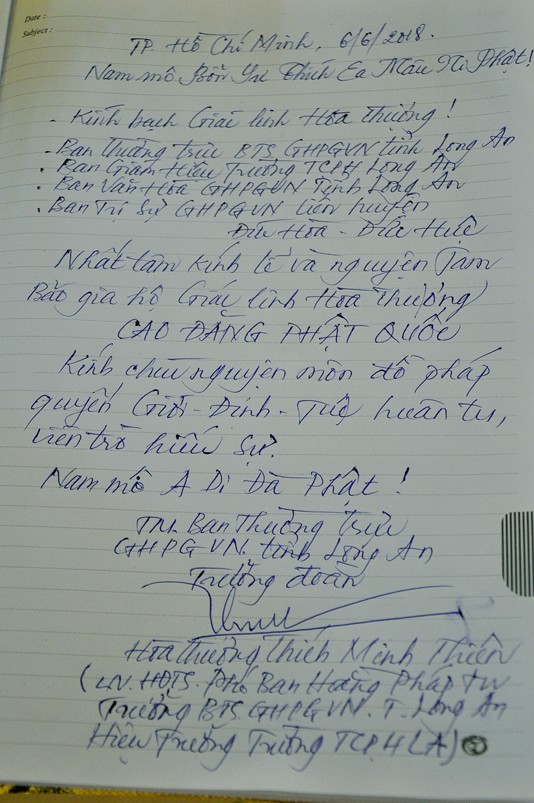 Date :
Subject :
TP. Hồ Chí Minh, 6/6/2018.
Nam mô Bổn Sư Thích Ca Mâu Ni Phật!
- Kính bạch Giác linh Hòa thượng!
- Ban Thường trực BTS GHPGVN tỉnh Long An
. Ban Giám Hiệu Trường TCPH Long An
. Ban Văn Hóa GHPGVN Tỉnh Long An
. Ban Trị Sự GHPGVN liên huyện
Đức Hòa - Đức Huệ
Nhất tâm kính lễ và nguyện Tam
Bảo gia hộ Giác linh Hòa thượng
CAO ĐĂNG PHẬT QUỐC
Kính chúc nguyện môn đồ pháp
quyến Giới - Định - Tuệ huân tu,
viên trò hiếu sự.
Nam mô A Di Đà Phật!
TM. Ban Thường trực
GHPGVN. tỉnh Long An
Trưởng đoàn
Hòa thượng Thích Minh Thiện
(UV. HĐTS. Phó Ban Hoằng Pháp TW
Trưởng BTS. GHPGVN. T. Long An
Hiệu Trưởng Trường TCPH LA)